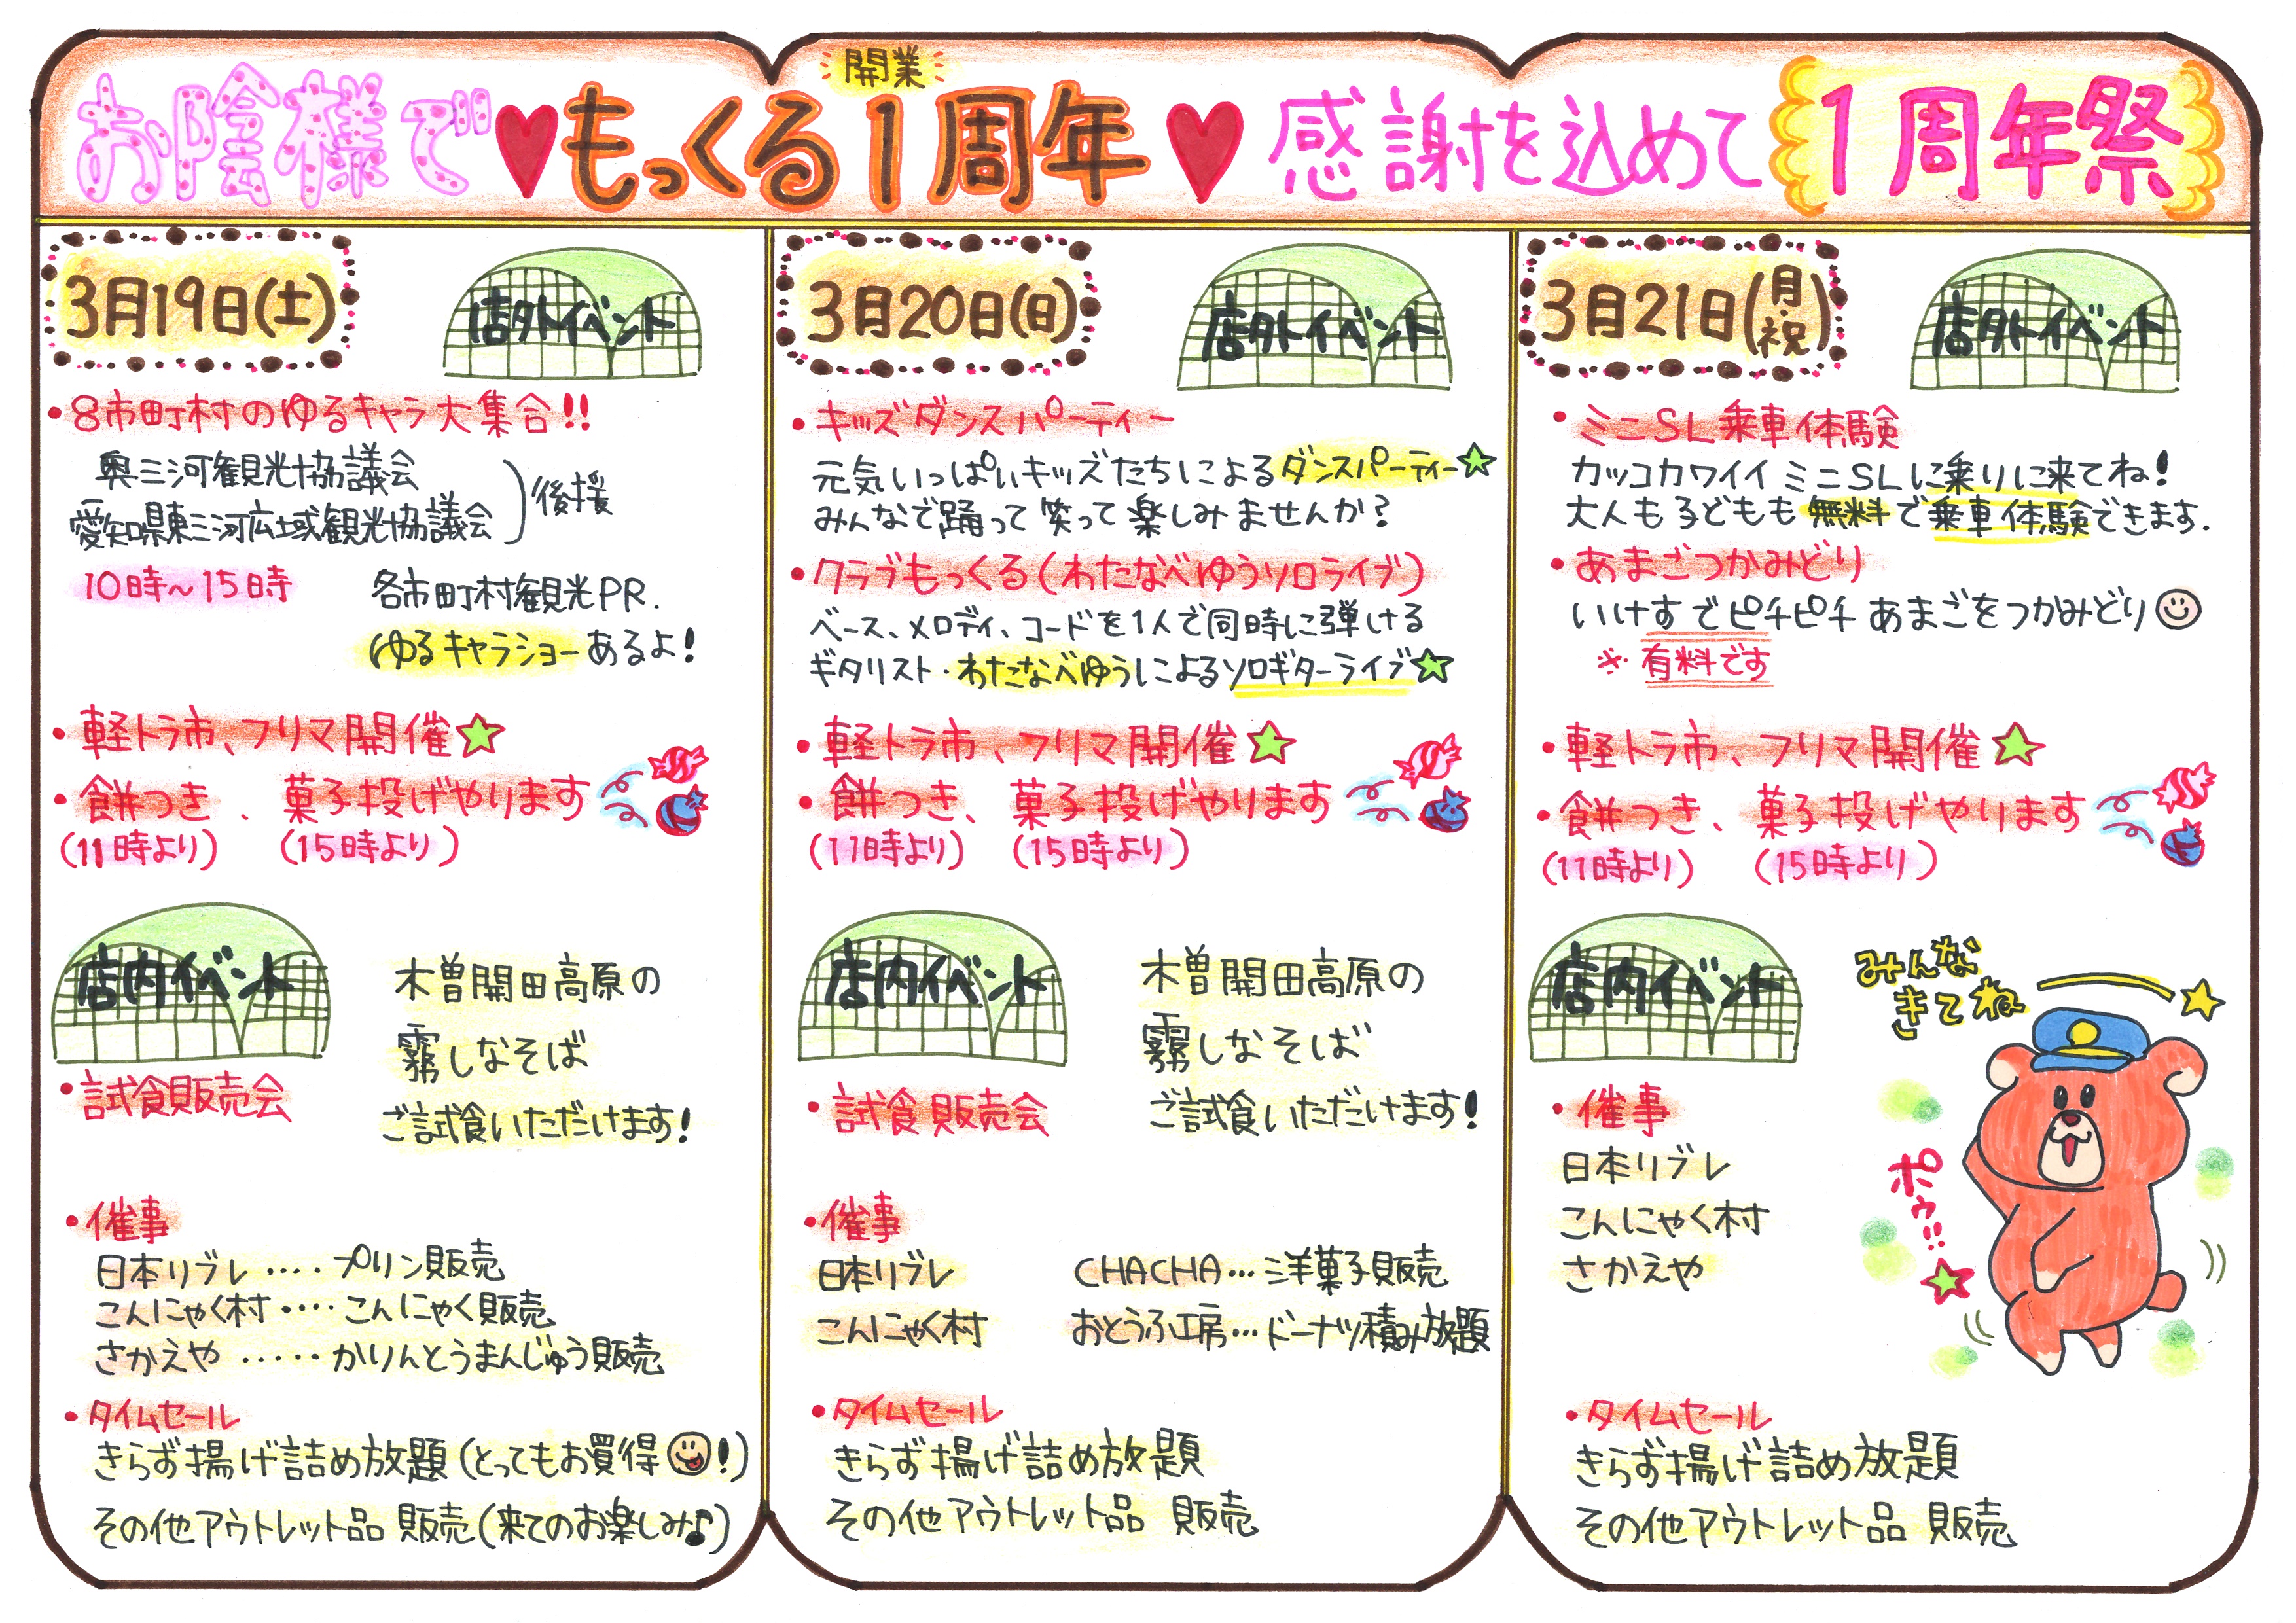 お陰様で♥もっくる開業1周年♥感謝を込めて1周年祭
3月19日(土)
店外イベント
・8市町村のゆるキャラ大集合!!
奥三河観光協議会
愛知県東三河広域観光協議会
後援
10時～15時
各市町村観光PR.
ゆるキャラショーあるよ!
・軽トラ市、フリマ開催☆
・餅つき、菓子投げやります
(11時より) (15時より)
店内イベント
木曽開田高原の
霧しなそば
ご試食いただけます!
・試食販売会
・催事
日本リブレ････プリン販売
こんにゃく村････こんにゃく販売
さかえや･････かりんとうまんじゅう販売
・タイムセール
きらず揚げ詰め放題(とってもお買得!)
その他アウトレット品 販売(来てのお楽しみ♪)
3月20日(日)
店外イベント
・キッズダンスパーティー
元気いっぱいキッズたちによるダンスパーティー☆
みんなで踊って笑って楽しみませんか?
・クラブもっくる(わたなべゆうソロライブ)
ベース、メロディ、コードを1人で同時に弾ける
ギタリスト・わたなべゆうによるソロギターライブ☆
・軽トラ市、フリマ開催☆
・餅つき、菓子投げやります
(11時より) (15時より)
店内イベント
木曽開田高原の
霧しなそば
ご試食いただけます!
・試食販売会
・催事
日本リブレ CHACHA…洋菓子販売
こんにゃく村 おとうふ工房…ドーナツ積み放題
・タイムセール
きらず揚げ詰め放題
その他アウトレット品 販売
3月21日(月・祝)
店外イベント
・ミニSL乗車体験
カッコカワイイミニSLに乗りに来てね!
大人も子どもも無料で乗車体験できます.
・あまごつかみどり
いけすでピチピチあまごをつかみどり
※有料です
・軽トラ市、フリマ開催☆
・餅つき、菓子投げやります
(11時より) (15時より)
店内イベント
みんな
きてね
・催事
日本リブレ
こんにゃく村
さかえや
ポゥ!!
・タイムセール
きらず揚げ詰め放題
その他アウトレット品 販売